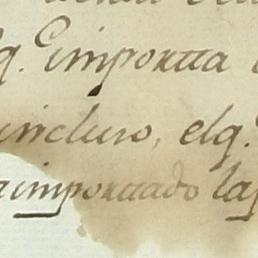 q.^e importta
incluso, elq.
importtado las